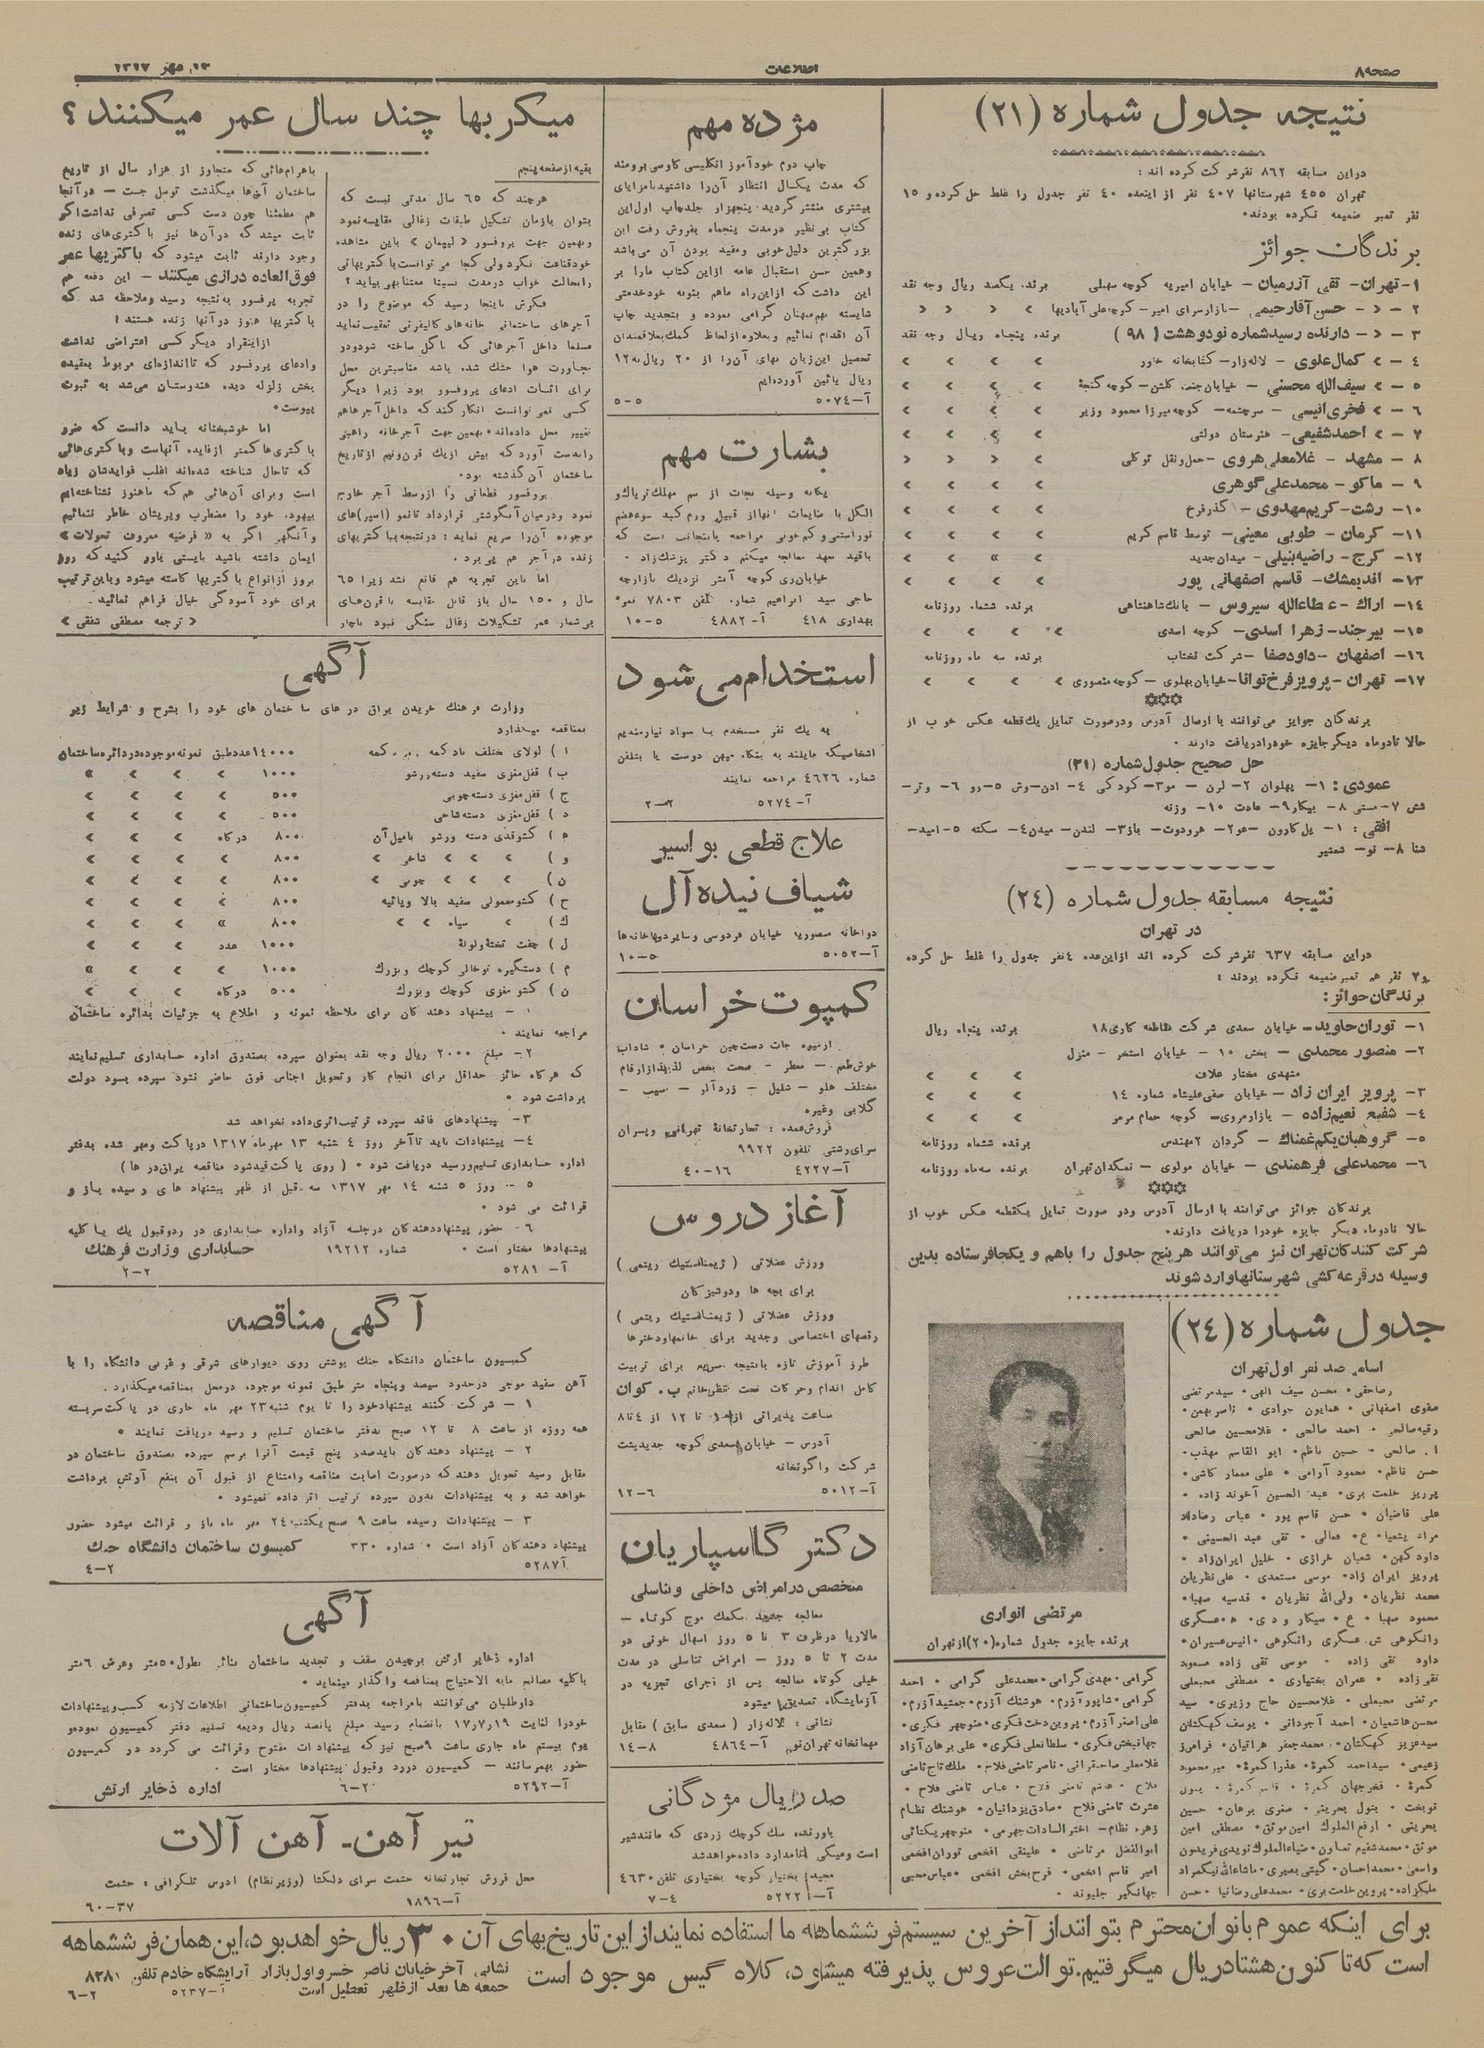 صفحه ۸
اطلاعات
۱۳ مهر ۱۳۱۷
نتیجه جدول شماره (۲۱)
دراین مسابقه ۸٦۲ نفرشرکت کرده اند :
تهران ٤٥٥ شهرستانها ٤۰۷ نفر از اینعده ٤۰ نفر جدول را غلط حل کرده و ۱٥
نفر تمبر ضمیمه نکرده بودند.
برندگان جوائز
۱- تهران- تقی آذرمیان- خیابان امیریه کوچه سهیلی برنده یکصد ریال وجه نقد
۲ - « - حسن آقارحیمی -بازارسرای امیر- کوچه علی آبادیها « « « «
۳ - « - دارنده رسیدشماره نودوهشت (۹۸) برنده پنجاه ریال وجه نقد
٤ - « کمال علوی - لاله زار- کتابخانه خاور « « « «
٥ - « سیف الله محسنی - خیابان جنب گلشن- کوچه گنجهٔ « « « «
٦ - « فخری انیسی - سرچشمه- کوچه میرزا محمود وزیر « « « «
۷ - « احمدشفیعی- هنرستان دولتی « « « «
۸ - مشهد - غلامعلی هروی -حمل ونقل توکلی « « « «
۹ - ماکو - محمدعلی گوهری « « « «
۱۰- رشت- کریم مهدوی - گذرفرخ « « « «
۱۱- کرمان - طوبی معینی- توسط قاسم کریم « « « «
۱۲- کرج- راضیه بنیلی - میدان جدید « « « «
۱۳- اندیمشک- قاسم اصفهانی پور « « « «
۱٤- اراک - عطاءالله سیروس - بانک شاهنشاهی برنده ششماه روزنامه
۱٥- بیرجند- زهرا اسدی- کوچه اسدی « « « «
۱٦- اصفهان -داودصفا -شرکت نختاب برنده سه ماه روزنامه
۱۷- تهران -پرویزفرخ توانا-خیابان پهلوی - کوچه منصوری « « « «
برندگان جوایز می توانند با ارسال آدرس ودرصورت تمایل یک قطعه عکس خوب از
حالا تادوماه دیگرجایزه خودرادریافت دارند .
حل صحیح جدول شماره (۲۱)
عمودی : ۱- پهلوان ۲- لرن - مو۳- کودکی ٤- ادن-وش ٥-رو ٦- وتر-
شش ۷- مستی ۸- بیکار۹- عادت ۱۰- وزنه
افقی : ۱- پل کارون -عو۲- هرودوت- باز۳- لندن- میدن٤- سکته ٥-امید-
شنا ۸- نو- شمشیر
نتیجه مسابقه جدول شماره (۲٤)
در تهران
دراین مسابقه ٦۳۷ نفرشرکت کرده اند ازاین عده ٤نفر جدول را غلط حل کرده
و۲ نفر هم تمبرضمیمه نکرده بودند :
برندگان جوائز :
۱- توران جاوید- خیابان سعدی شرکت مقاطعه کاری۱۸ برنده پنجاه ریال
۲- منصور محمدی - بخش ۱۰ - خیابان استخر - منزل
مشهدی مختار علاف « « «
۳- پرویز ایران زاد- خیابان صفی علیشاه شماره ۱٤ « « «
٤- شفیع نعیم زاده - بازارمروی- کوچه حمام مرمر « « «
٥- گروهبان یکم غمناک - گردان ۲مهندس برنده ششماه روزنامه
٦- محمدعلی فرهمندی - خیابان مولوی - نمکدان تهران برنده سه ماه روزنامه
برندگان جوائز می توانند با ارسال آدرس ودر صورت تمایل یکقطعه عکس خوب از
حالا تادوماه دیگر جایزه خودرا دریافت دارند.
شرکت کنندگان تهران نیز می توانند هرپنج جدول را باهم و یکجافرستاده بدین
وسیله درقرعه کشی شهرستانهاوارد شوند
جدول شماره (۲٤)
اسامی صد نفر اول تهران
رضاحقی، محسن سیف الهی . سیدمرتضی
صفوی اصفهانی . همایون جوادی . ناصربهمن.
رقیه صالحی . احمد صالحی . غلامحسین صالحی
ا. صالحی - حسین ناظم. ابو القاسم مهذب.
حسن ناظم. محمود آرامی . علی معمار کاشی.
پرویز خلعت بری. عبد الحسین آخوند زاده .
علی قاضیان . حسن قاسم پور . عباس رضاداد
مراد یشعیا . ع. فعالی . تقی عبد الحسینی .
داود کهن. شعبان خرازی . خلیل ایران زاد.
پرویز ایران زاد. موسی مستعدی . علی نظریان.
محمد نظریان. ولی الله نظریان . قدسیه صهبا.
محمود صهبا . ع . سیکار و دی . ه.عسگری
رانکوهی ش. عسگری رانکوهی .انیس عسیران.
داود تقی زاده . موسی تقی زاده مسعود
تقی زاده . عمران بختیاری . مصطفی محبعلی
مرتضی محبعلی . غلامحسین حاج وزیری . سید
محسن هاشمیان . احمد آجودانی . یوسف کهکشان
سیدعزیز کهکشان. محمدجعفر هراتیان. فرامرز
زعیمی . سیداحمد کمرهٔ . عذرا کمرهٔ. میرمحمود
کمرهٔ . فخرجهان کمرهٔ . قاسم کمرهٔ . بتول
نوبخت . بتول بحرینی . صغری برهان. حسین
بحرینی . ارفع الملوک امین موثق. مصطفی امین
موثق.محمدشفیع تعاون. ضیاءالملوک نویدی فریدون
واسعی. محمداحسان . گیتی بصیری. ماشاءالله نیکمراد
ملیکزاده. پروین خلعت بری. محمدعلی رضانیا . حسن
مرتضی انواری
برنده جایزه جدول شماره (۲۰)ازتهران
گرامی . مهدی گرامی. محمدعلی گرامی . احمد
گرامی . شاپور آزرم . هوشنگ آزرم . جمشید آزرم .
علی اصغر آزرم. پروین دخت فکری. منوچهر فکری.
جهانبخش فکری . سلطانعلی فکری . علی برهان آزاد
غلامعلی صاحبقرانی . ناصر ثامنی فلاح . ملک تاج ثامنی
فلاح . هاشم ثامنی فلاح . عباس ثامنی فلاح .
عشرت ثامنی فلاح . صادق یزدانیان . هوشنگ نظام
زهره نظام- اختر السادات جهرمی . منوچهریکتائی
ابوالفضل مرتاضی . علینقی افخمی توران افخمی
امیر قاسم افخمی. فرح بخش افخمی .عباس محبی
جهانگیر جلیوند .
مژده مهم
چاپ دوم خودآموز انگلیسی کاوسی برومند
که مدت یکسال انتظار آن را داشتید بامزایای
بیشتری منتشر گردید. پنجهزار جلدچاپ اول این
کتاب بی نظیر درمدت پنجماه بفروش رفت این
بزرگترین دلیل خوبی ومفید بودن آن می باشد
وهمین حسن استقبال عامه ازاین کتاب مارا بر
این داشت که ازاین راه ماهم بنوبه خودخدمتی
شایسته بهم میهنان گرامی نموده و بتجدید چاپ
آن اقدام نمائیم وبعلاوه ازلحاظ کمک بعلاقمندان
تحصیل این زبان بهای آن را از ۲۰ ریال به۱۲
ریال پائین آورده ایم
آ-٥۰۷٤ ٥-٥
بشارت مهم
یگانه وسیله نجات از سم مهلک تریاک و
الکل با ضایعات آنهااز قبیل ورم کبد سوءهضم
نوراستنی وکم خونی مراجعه باینجانب است که
باقید تعهد معالجه میکنم دکتر پزشک زاد .
خیابان ری کوچه آبشار نزدیک بازارچه
حاجی سید ابراهیم شماره تلفن ۷۸۰۳ نمره
بهداری ٤۱۸ آ-٤۸۸۲ ٥-۱۰
استخدام می شود
به یک نفر مستخدم با سواد نیازمندیم
اشخاصیکه مایلند به بنگاه میهن دوست یا بتلفن
شماره ٤٦۲٦ مراجعه نمایند
آ-٥۲۷٤ ۲-۲
علاج قطعی بواسیر
شیاف نیده آل
دواخانه منصوریه خیابان فردوسی وسایردواخانه ها
آ-٥۰٥۲ ٥-۱۰
کمپوت خراسان
ازمیوه جات دست چین خراسان . شاداب
خوش طعم - معطر - صحت بخش لذیذازارقام
مختلف هلو - شلیل - زردآلو - سیب -
گلابی وغیره
فروش عمده : تجارتخانهٔ تهرانچی وپسران
سرای رشتی تلفون ۹۹۲۲
آ-٤۲۲۷ ۱٦-٤۰
آغاز دروس
ورزش عضلاتی ( ژیمناستیک ریتمی )
برای بچه ها ودوشیزگان
وورزش عضلاتی ( ژیمناستیک ریتمی )
رقصهای اختصاصی وجدید برای خانمهاودخترها
طرز آموزش تازه بانتیجه سریع برای تربیت
کامل اندام وحرکات تحت نظرخانم ب. کوان
ساعت پذیرائی از۱۰ تا ۱۲ از ٤تا۸
آدرس - خیابان سعدی کوچه جدیدپشت
شرکت واگونخانه
آ-٥۰۱۲ ٦-۱۲
دکتر گاسپاریان
متخصص درامراض داخلی وتناسلی
معالجه جدید بکمک موج کوتاه -
مالاریا درظرف ۳ تا ٥ روز اسهال خونی در
مدت ۲ تا ٥ روز - امراض تناسلی در مدت
خیلی کوتاه معالجه پس از اجرای تجزیه در
آزمایشگاه تصدیق میشود
نشانی : لاله زار (سعدی سابق) مقابل
مهمانخانه تهران نو آ-٤۸٦٤ ۸-۱٤
صد ریال مژدگانی
باورنده سگ کوچک زردی که مانندشیر
است ومیکی نامدارد داده خواهدشد
مجیدیه بختیار کوچه بختیاری تلفن ٤٦۳۰
آ-٥۲۲۲ ٤-۷
میکربها چند سال عمر میکنند ؟
بقیه ازصفحه پنجم
هرچند که ٦٥ سال مدتی نیست که
بتوان بازمان تشکیل طبقات زغالی مقایسه نمود
وبهمین جهت پروفسور « لیپمان » باین مشاهده
خودقناعت نکرد ولی کجا می توانست باکتریهائی
رابحالت خواب درمدت نسبتا معتنابهی بیابد ؟
فکرش باینجا رسید که موضوع را در
آجرهای ساختمانی خانه های کالیفرنی تعقیب نماید
مسلما داخل آجرهائی که باگل ساخته شودودر
مجاورت هوا خشک شده باشد مناسبترین محل
برای اثبات ادعای پروفسور بود زیرا دیگر
کسی نمی توانست انکار کند که داخل آجرها هم
تغییر محل داده اند. بهمین جهت آجرخانه راهبی
رابدست آورد که بیش ازیک قرن ونیم ازتاریخ
ساختمان آن گذشته بود.
پروفسور قطعاتی را ازوسط آجر خارج
نمود ودرمیان آبگوشتی قرارداد تانمو (اسپر)های
موجوده آن را سریع نماید : درنتیجه باکتریهای
زنده درآجر هم پی برد .
اما باین تجربه هم قانع نشد زیرا ٦٥
سال و ۱٥۰ سال باز قابل مقایسه با قرن های
بی شمار عمر تشکیلات زغال سنگی نبود ناچار
باهرام هائی که متجاوز از هزار سال از تاریخ
ساختمان آن ها میگذشت توسل جست - درآنجا
هم مطمئنا چون دست کسی تصرفی نداشت اگر
ثابت میشد که درآن ها نیز باکتری های زنده
وجود دارند ثابت میشود که باکتریها عمر
فوق العاده درازی میکنند - این دفعه هم
تجربه پرفسور به نتیجه رسید وملاحظه شد که
باکتریها هنوز درآنها زنده هستند !
ازاینقرار دیگر کسی اعتراضی نداشت
وادعای پرفسور که تااندازه ای مربوط بعقیده
بخش زلزله دیده هندوستان می شد به ثبوت
پیوست.
اما خوشبختانه باید دانست که ضرر
باکتری ها کمتر ازفایده آنهاست وباکتری هائی
که تاحال شناخته شده اند اغلب فوایدشان زیاد
است وبرای آن هائی هم که ماهنوز نشناخته ایم
بیهوده خود را مضطرب وپریشان خاطر ننمائیم
وآنگهی اگر به « فرضیه معروف تحولات »
ایمان داشته باشید بایستی باور کنید که روز
بروز ازانواع باکتریها کاسته میشود وباین ترتیب
برای خود آسودگی خیال فراهم نمائید .
« ترجمه مصطفی شفقی »
آگهی
وزارت فرهنگ خریدن یراق در های ساختمان های خود را بشرح و شرایط زیر
بمناقصه میگذارد
ا ) لولای مختلف باد کمه ... کمه ۱٤۰۰۰عددطبق نمونه موجوده دردائره ساختمان
ب ) قفل مغزی سفید دسته ورشو ۱۰۰۰ « « « «
ج ) قفل مغزی دسته چوبی ٥۰۰ « « « «
د ) قفل مغزی دسته شاخی ٥۰۰ « « « «
ه ) کشوفندی دسته ورشو بامیل آن ۸۰۰ درگاه « « «
و ) « « « شاخی « ۸۰۰ « « « «
ن ) « « « چوبی « ۸۰۰ « « « «
ح ) کشومعمولی سفید بالا وپائیه ۸۰۰ « « « «
ک ) « سیاه « « ۸۰۰ « « « «
ل ) جفت تختهٔ ولولهٔ ۱۰۰۰ عدد « « «
م ) دستگیره توخالی کوچک وبزرگ ۱۰۰۰ « « « «
ن ) کشو مغزی کوچک وبزرگ ٥۰۰ درگاه « « «
۱ - پیشنهاد دهندگان برای ملاحظه نمونه و اطلاع به جزئیات بدائره ساختمان
مراجعه نمایند .
۲- مبلغ ۲۰۰۰ ریال وجه نقد بعنوان سپرده بصندوق اداره حسابداری تسلیم نمایند
که هرگاه حائز حداقل برای انجام کار وتحویل اجناس فوق حاضر نشود سپرده بسود دولت
برداشت شود .
۳- پیشنهادهای فاقد سپرده ترتیب اثری داده نخواهد شد
٤- پیشنهادات باید تاآخر روز ٤ شنبه ۱۳ مهر ماه ۱۳۱۷ درپاکت ومهر شده بدفتر
اداره حسابداری تسلیم ورسید دریافت شود . ( روی پاکت قیدشود مناقصه یراق درها )
٥ - روز ٥ شنبه ۱٤ مهر ۱۳۱۷ سه قبل از ظهر پیشنهاد های رسیده باز و
قرائت می شود .
٦- حضور پیشنهاددهندگان درجلسه آزاد واداره حسابداری در ردوقبول یک یا کلیه
پیشنهادها مختار است . شماره ۱۹۲۱۲ حسابداری وزارت فرهنگ
آ-٥۲۸۱ ۲-۲
آگهی مناقصه
کمیسیون ساختمان دانشگاه جنگ پوشش روی دیوارهای شرقی و غربی دانشگاه را با
آهن سفید موجی درحدود سیصد وپنجاه متر طبق نمونه موجوده درمحل بمناقصه میگذارد.
۱ - شرکت کنند پیشنهادخود را تا یوم شنبه۲۳ مهر ماه جاری در پاکت سربسته
همه روزه از ساعت ۸ تا ۱۲ صبح بدفتر ساختمان تسلیم و رسید دریافت نمایند .
۲ - پیشنهاد دهندگان بایدصدی پنج قیمت آنرا برسم سپرده بصندوق ساختمان در
مقابل رسید تحویل دهندکه درصورت اصابت مناقصه وامتناع از قبول آن بنفع آرتش برداشت
خواهد شد و به پیشنهادات بدون سپرده ترتیب اثر داده نمیشود .
۳ - پیشنهادات رسیده ساعت ۹ صبح یکشنبه ۲٤ مهر ماه باز و قرائت میشود حضور
پیشنهاد دهندگان آزاد است . شماره ۳۳۰ کمیسون ساختمان دانشگاه جنگ
آ ٥۲۸۷ ۲-٤
آگهی
اداره ذخایر ارتش برچیدن سقف و تجدید ساختمان بطول ٥۰متر وعرض ٦متر
باکلیه مصالح مابه الاحتیاج بمناقصه واگذار مینماید.
داوطلبان می توانند بامراجعه بدفتر کمیسیون ساختمانی اطلاعات لازمه کسب وپیشنهادات
خودرا لغایت ۱۷٫۷٫۱۹ بانضمام رسید مبلغ پانصد ریال ودیعه تسلیم دفتر کمیسیون نمودهو
یوم بیستم ماه جاری ساعت ۹صبح نیز که پیشنهادات مفتوح وقرائت می گردد در کمیسیون
حضور بهم رسانند - کمیسیون دررد وقبول پیشنهادها مختار است .
آ-٥۲۹۲ ۲-٦ اداره ذخایر ارتش
تیر آهن- آهن آلات
محل فروش تجارتخانه حشمت سرای دلگشا (وزیرنظام) آدرس تلگرافی : حشمت
آ-۱۸۹٦ ۳۷-٦۰
برای اینکه عموم بانوان محترم بتوانند از آخرین سیستم فر ششماهه ما استفاده نمایند از این تاریخ بهای آن ۳۰ ریال خواهد بود، این همان فر ششماهه
است که تاکنون هشتاد ریال میگرفتیم. توالت عروس پذیرفته میشود، کلاه گیس موجود است
نشانی آخر خیابان ناصر خسرو اول بازار آرایشگاه خادم تلفن ۸۳۸۱
جمعه ها بعد ازظهر تعطیل است آ-٥۲۳۷ ۲-٦